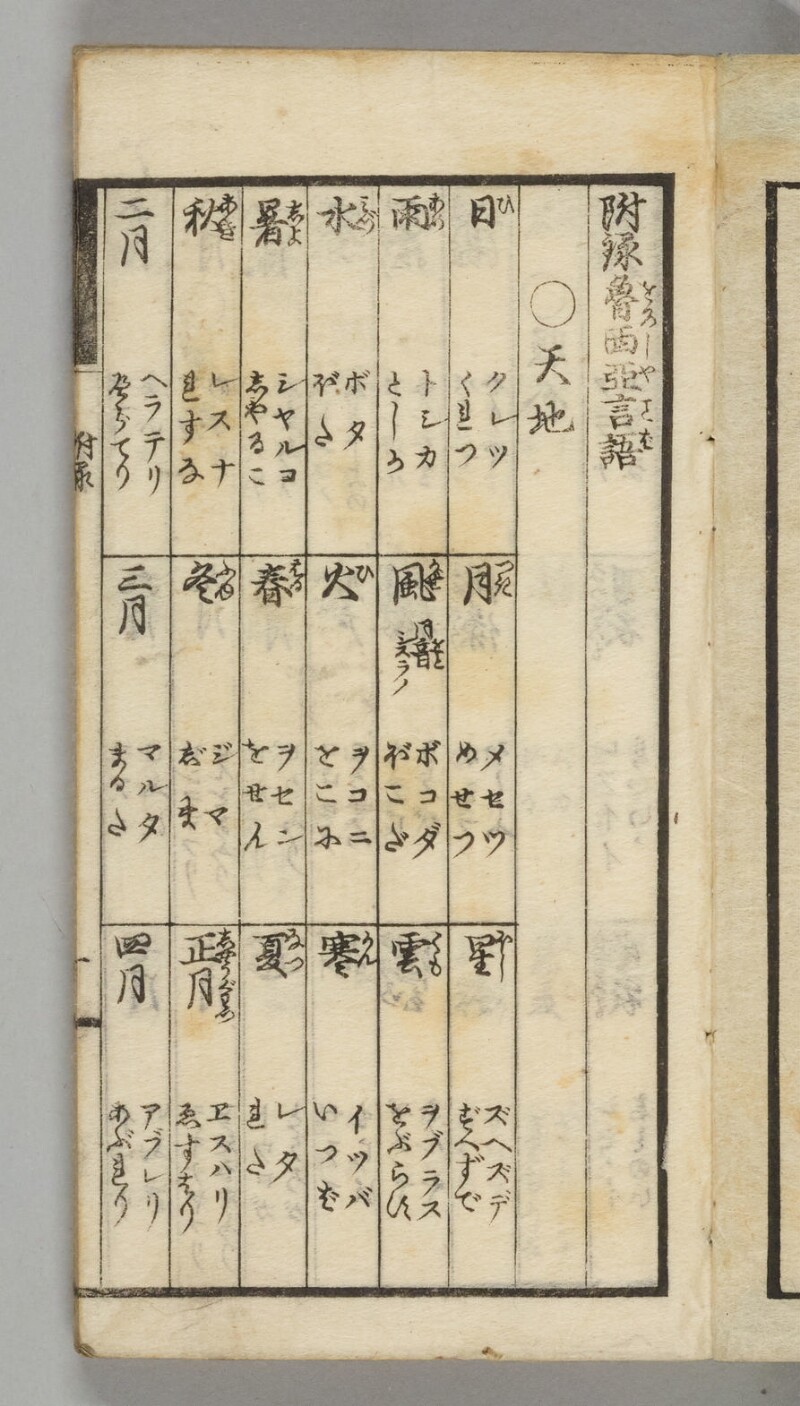 附録魯西亜言語
○天地
日 ひ クレツ くれつ
月 つき メセツ めせつ
星 ほし ズヘズデ ずへずで
雨 あめ トシカ としか
風 かぜ ボコダ ぼこだ
雲 くも ヲブラス をぶらす
水 みづ ボタ ぼた
火 ひ ヲコニ をこに
寒 かん イツバ いつば
暑 しよ シヤルコ しやるこ
春 はる ヲセン をせん
夏 なつ レタ れた
秋 あき レスナ れすな
冬 ふゆ ジマ じま
正月 しやうぐわつ ヱスハリ ゑすはり
二月 ヘラテリ
三月 マルタ まるた
四月 アブレリ あぶれり
附録
一